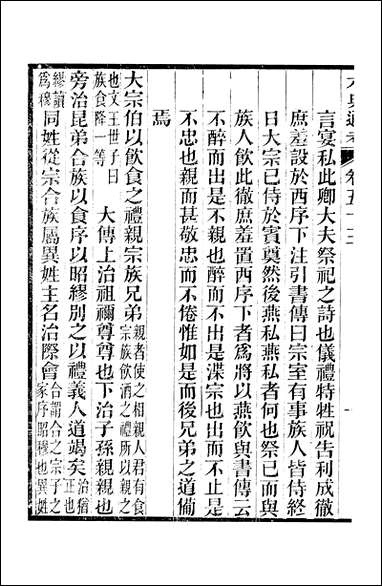 六典通考 卷五十三
言宴私此卿大夫祭祀之詩也儀禮特牲祝告利成徹
庶羞設於西序下注引書傳曰宗室有事族人皆侍終
日大宗已侍於賓奠然後燕私燕私者何也祭已而與
族人飲此徹庶羞置西序下者爲將以燕飲與書傳云
不醉而出是不親也醉而不出是渫宗也出而不止是
不忠也親而甚敬忠而不倦惟如是而後兄弟之道備
焉
大宗伯以飲食之禮親宗族兄弟親者使之相親人君有食宗族飲酒之禮所以親之
也文王世子曰族食降一等 大傳上治祖禰尊尊也下治子孫親親也
旁治昆弟合族以食序以昭繆別之以禮義人道竭矣治猶正也
繆讀爲穆同姓從宗合族屬異姓主名治際會合謂合之宗子之家序昭穆也異姓